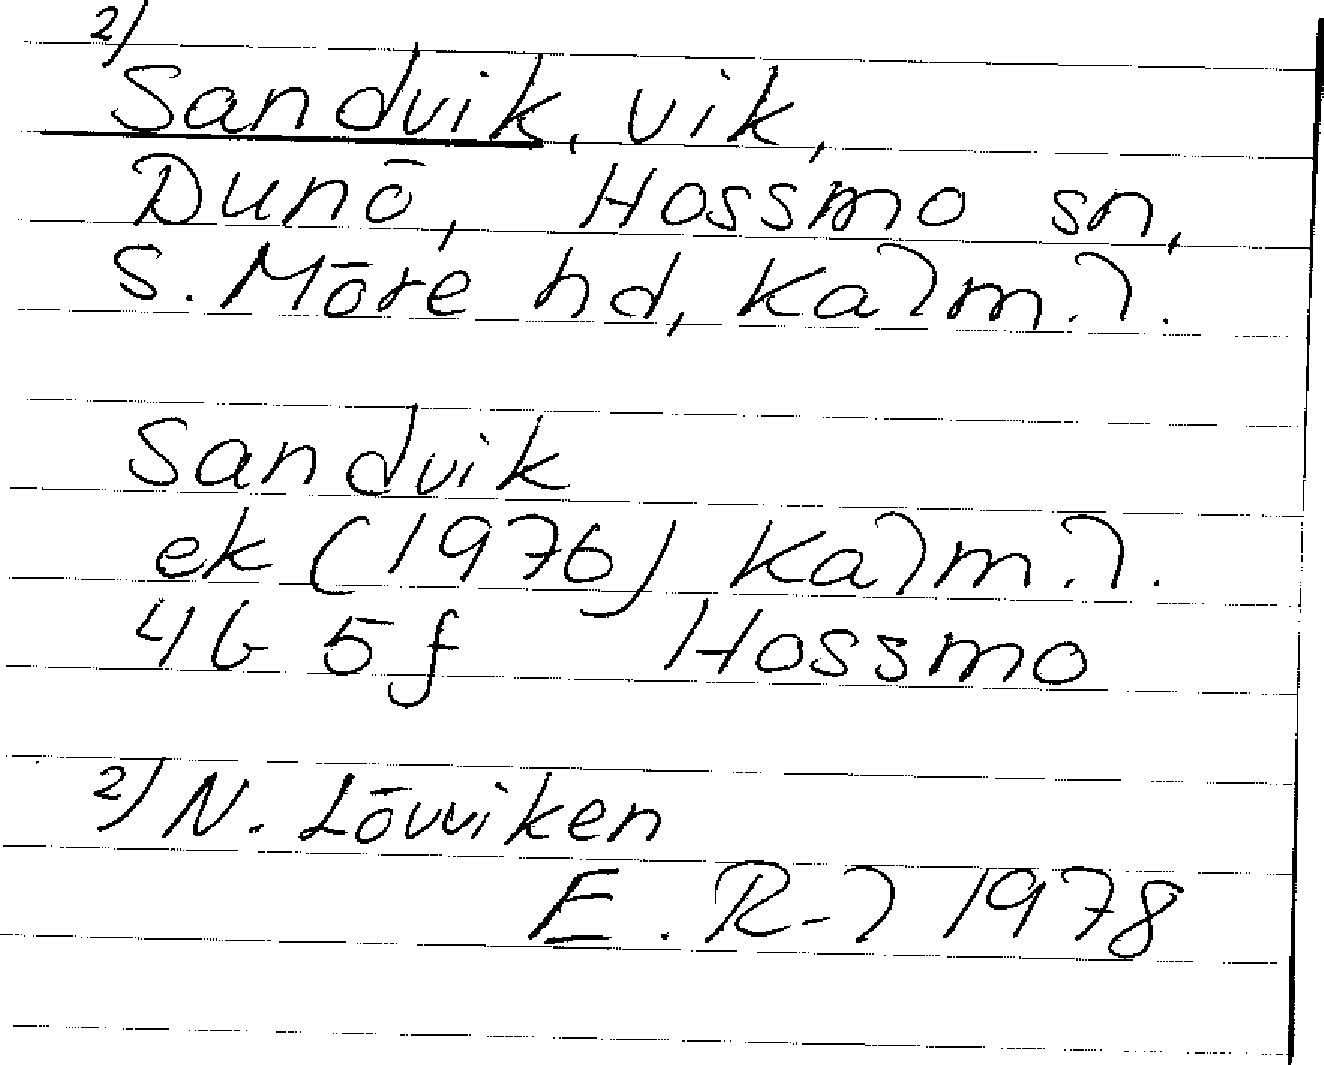 2)
Sandvik, vik,
Dunö, Hossmo sn,
S. Möre hd, Kalm. l.
Sandvik
ek (1976) Kalm. l.
4G 5f Hossmo
2) N. Lövviken
E. R-l 1978